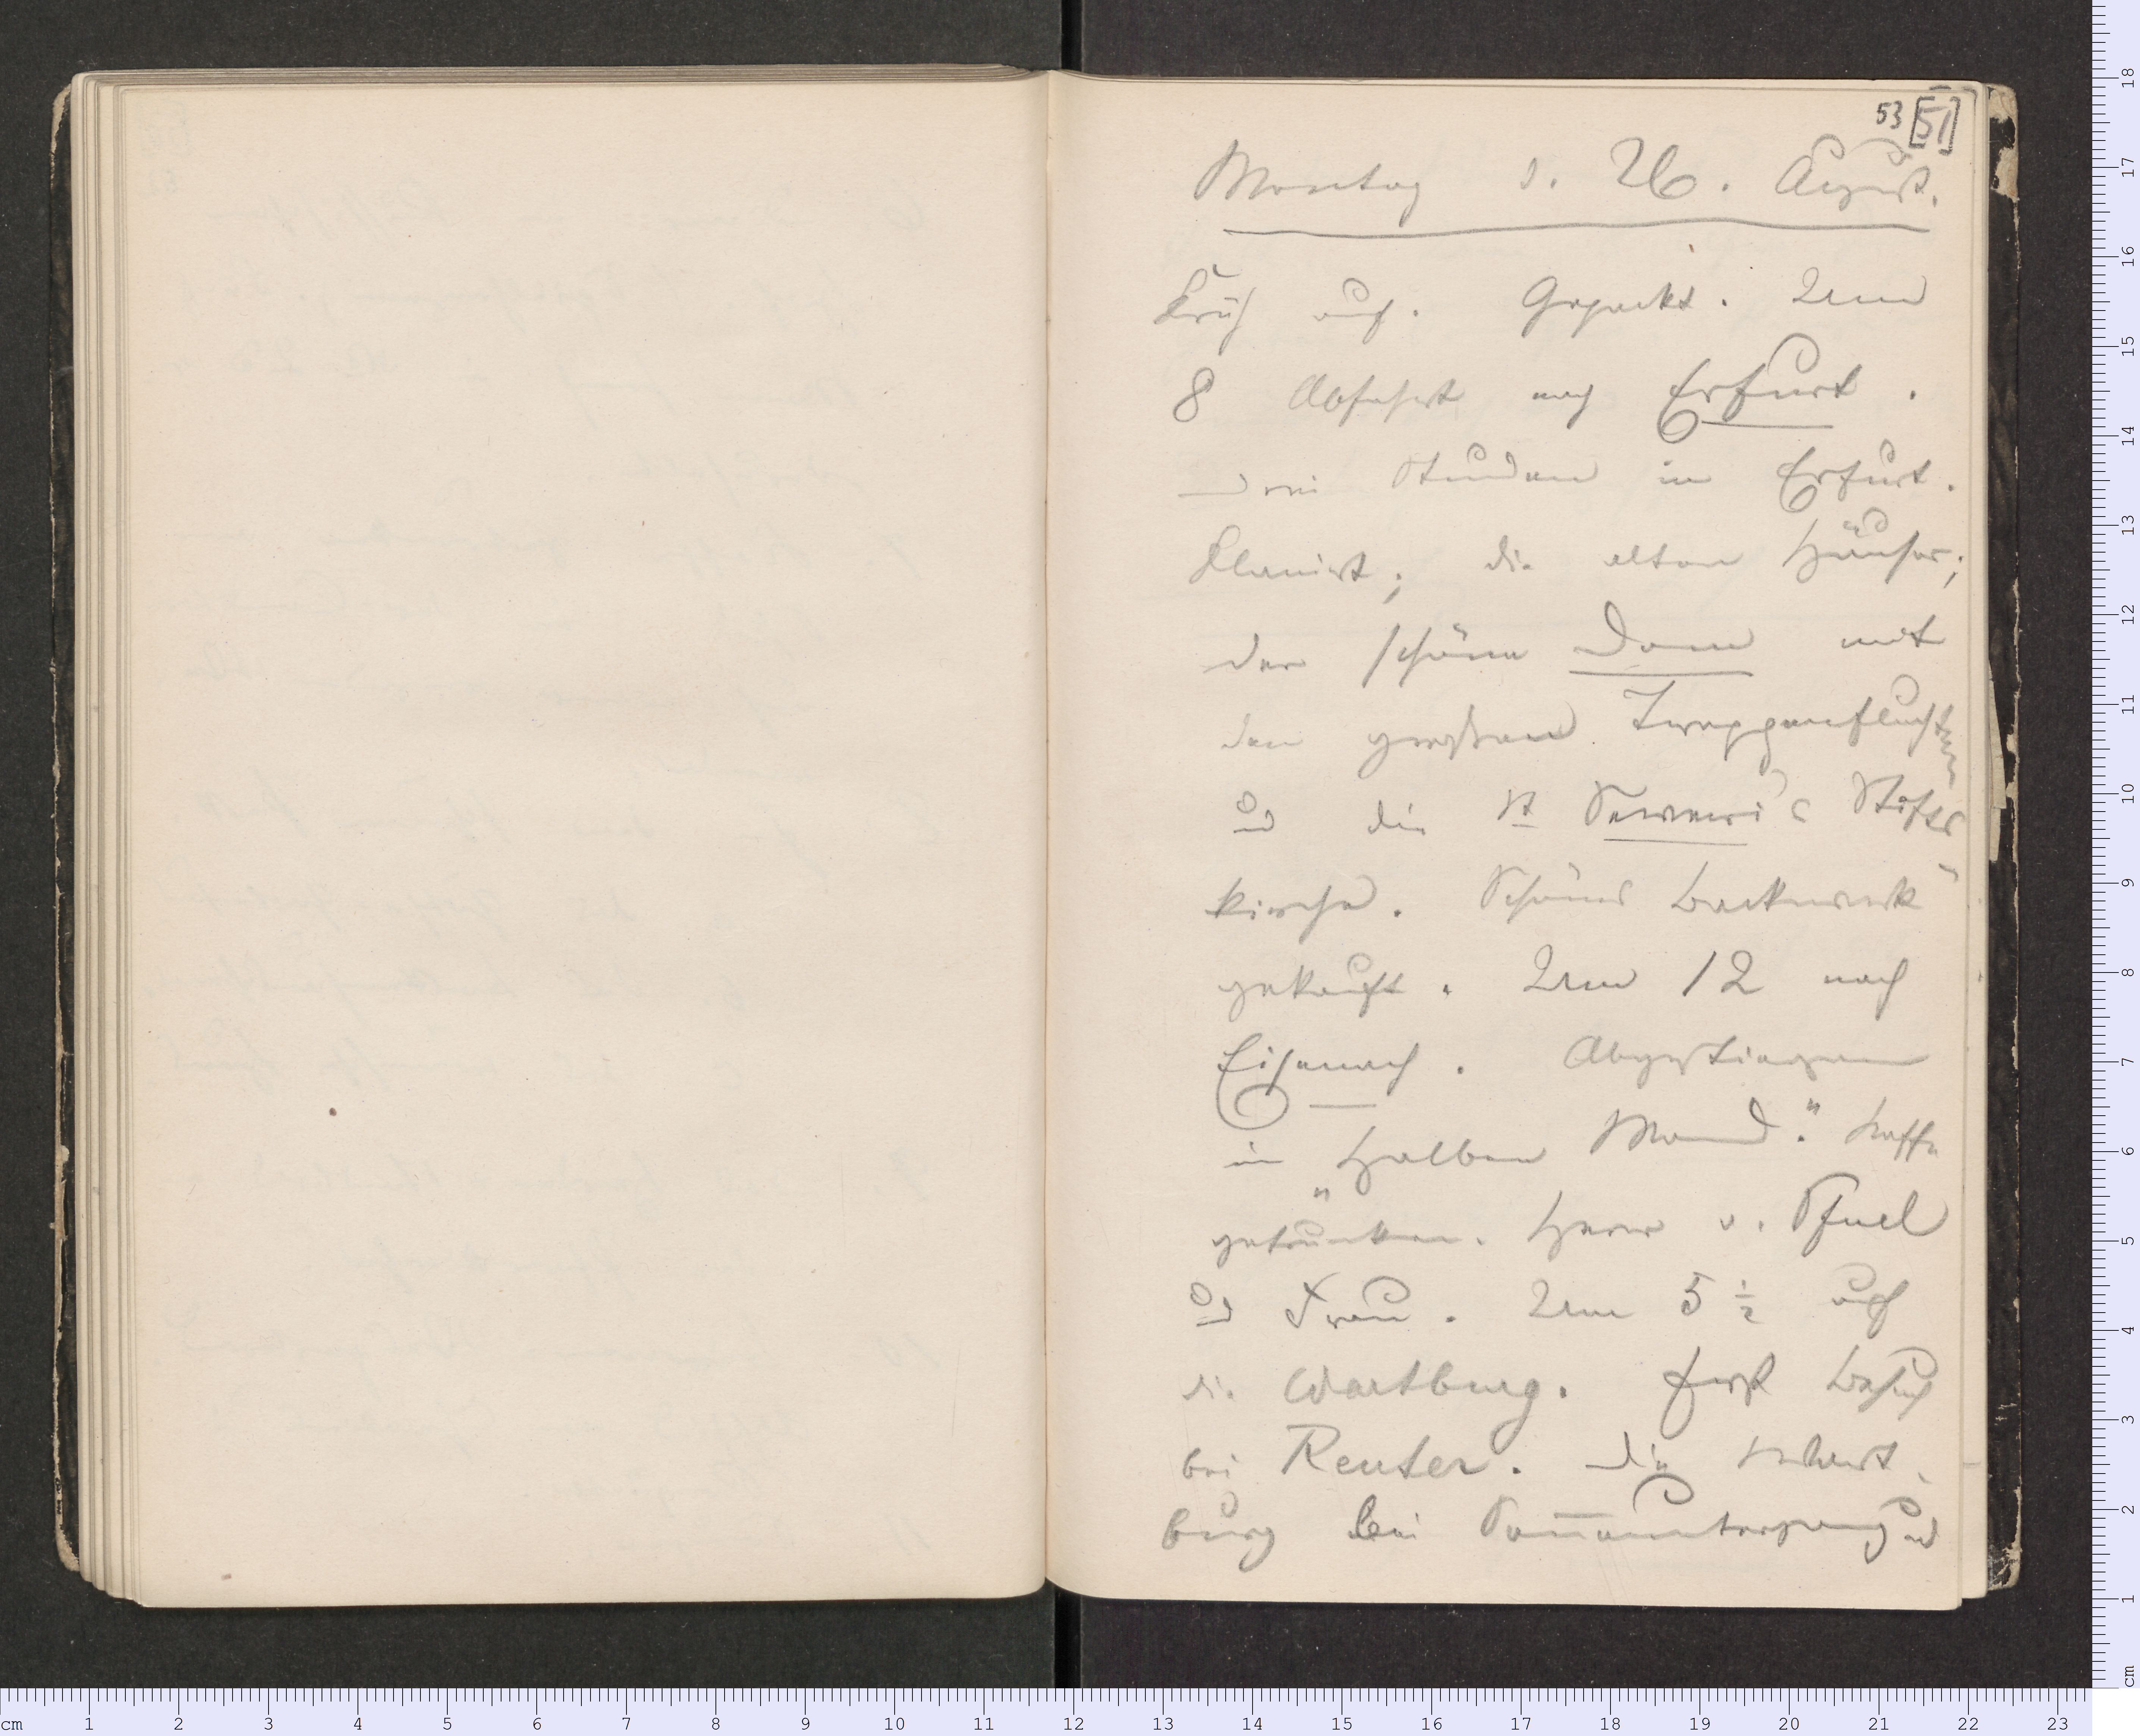 53 [51]
Montag d. 26. August.
Früh auf. Gepackt. Um
8 Abfahrt nach Erfurt.
drei Stunden in Erfurt.
Flanirt; die alten Häuser;
der schöne Dom mit
den großen Treppenfluchten
und die St Severi's Stifts
kirche. Schönes Backwerk
gekauft. Um 12 nach
Eisenach. Abgestiegen
im „Halben Mond." Kaffe
getrunken. Herr v. Pfuel
und Frau. Um 5 ½ auf
die Wartburg. Erst Besuch
bei Reuter. Die Wart-
burg bei Sonnenuntergang und